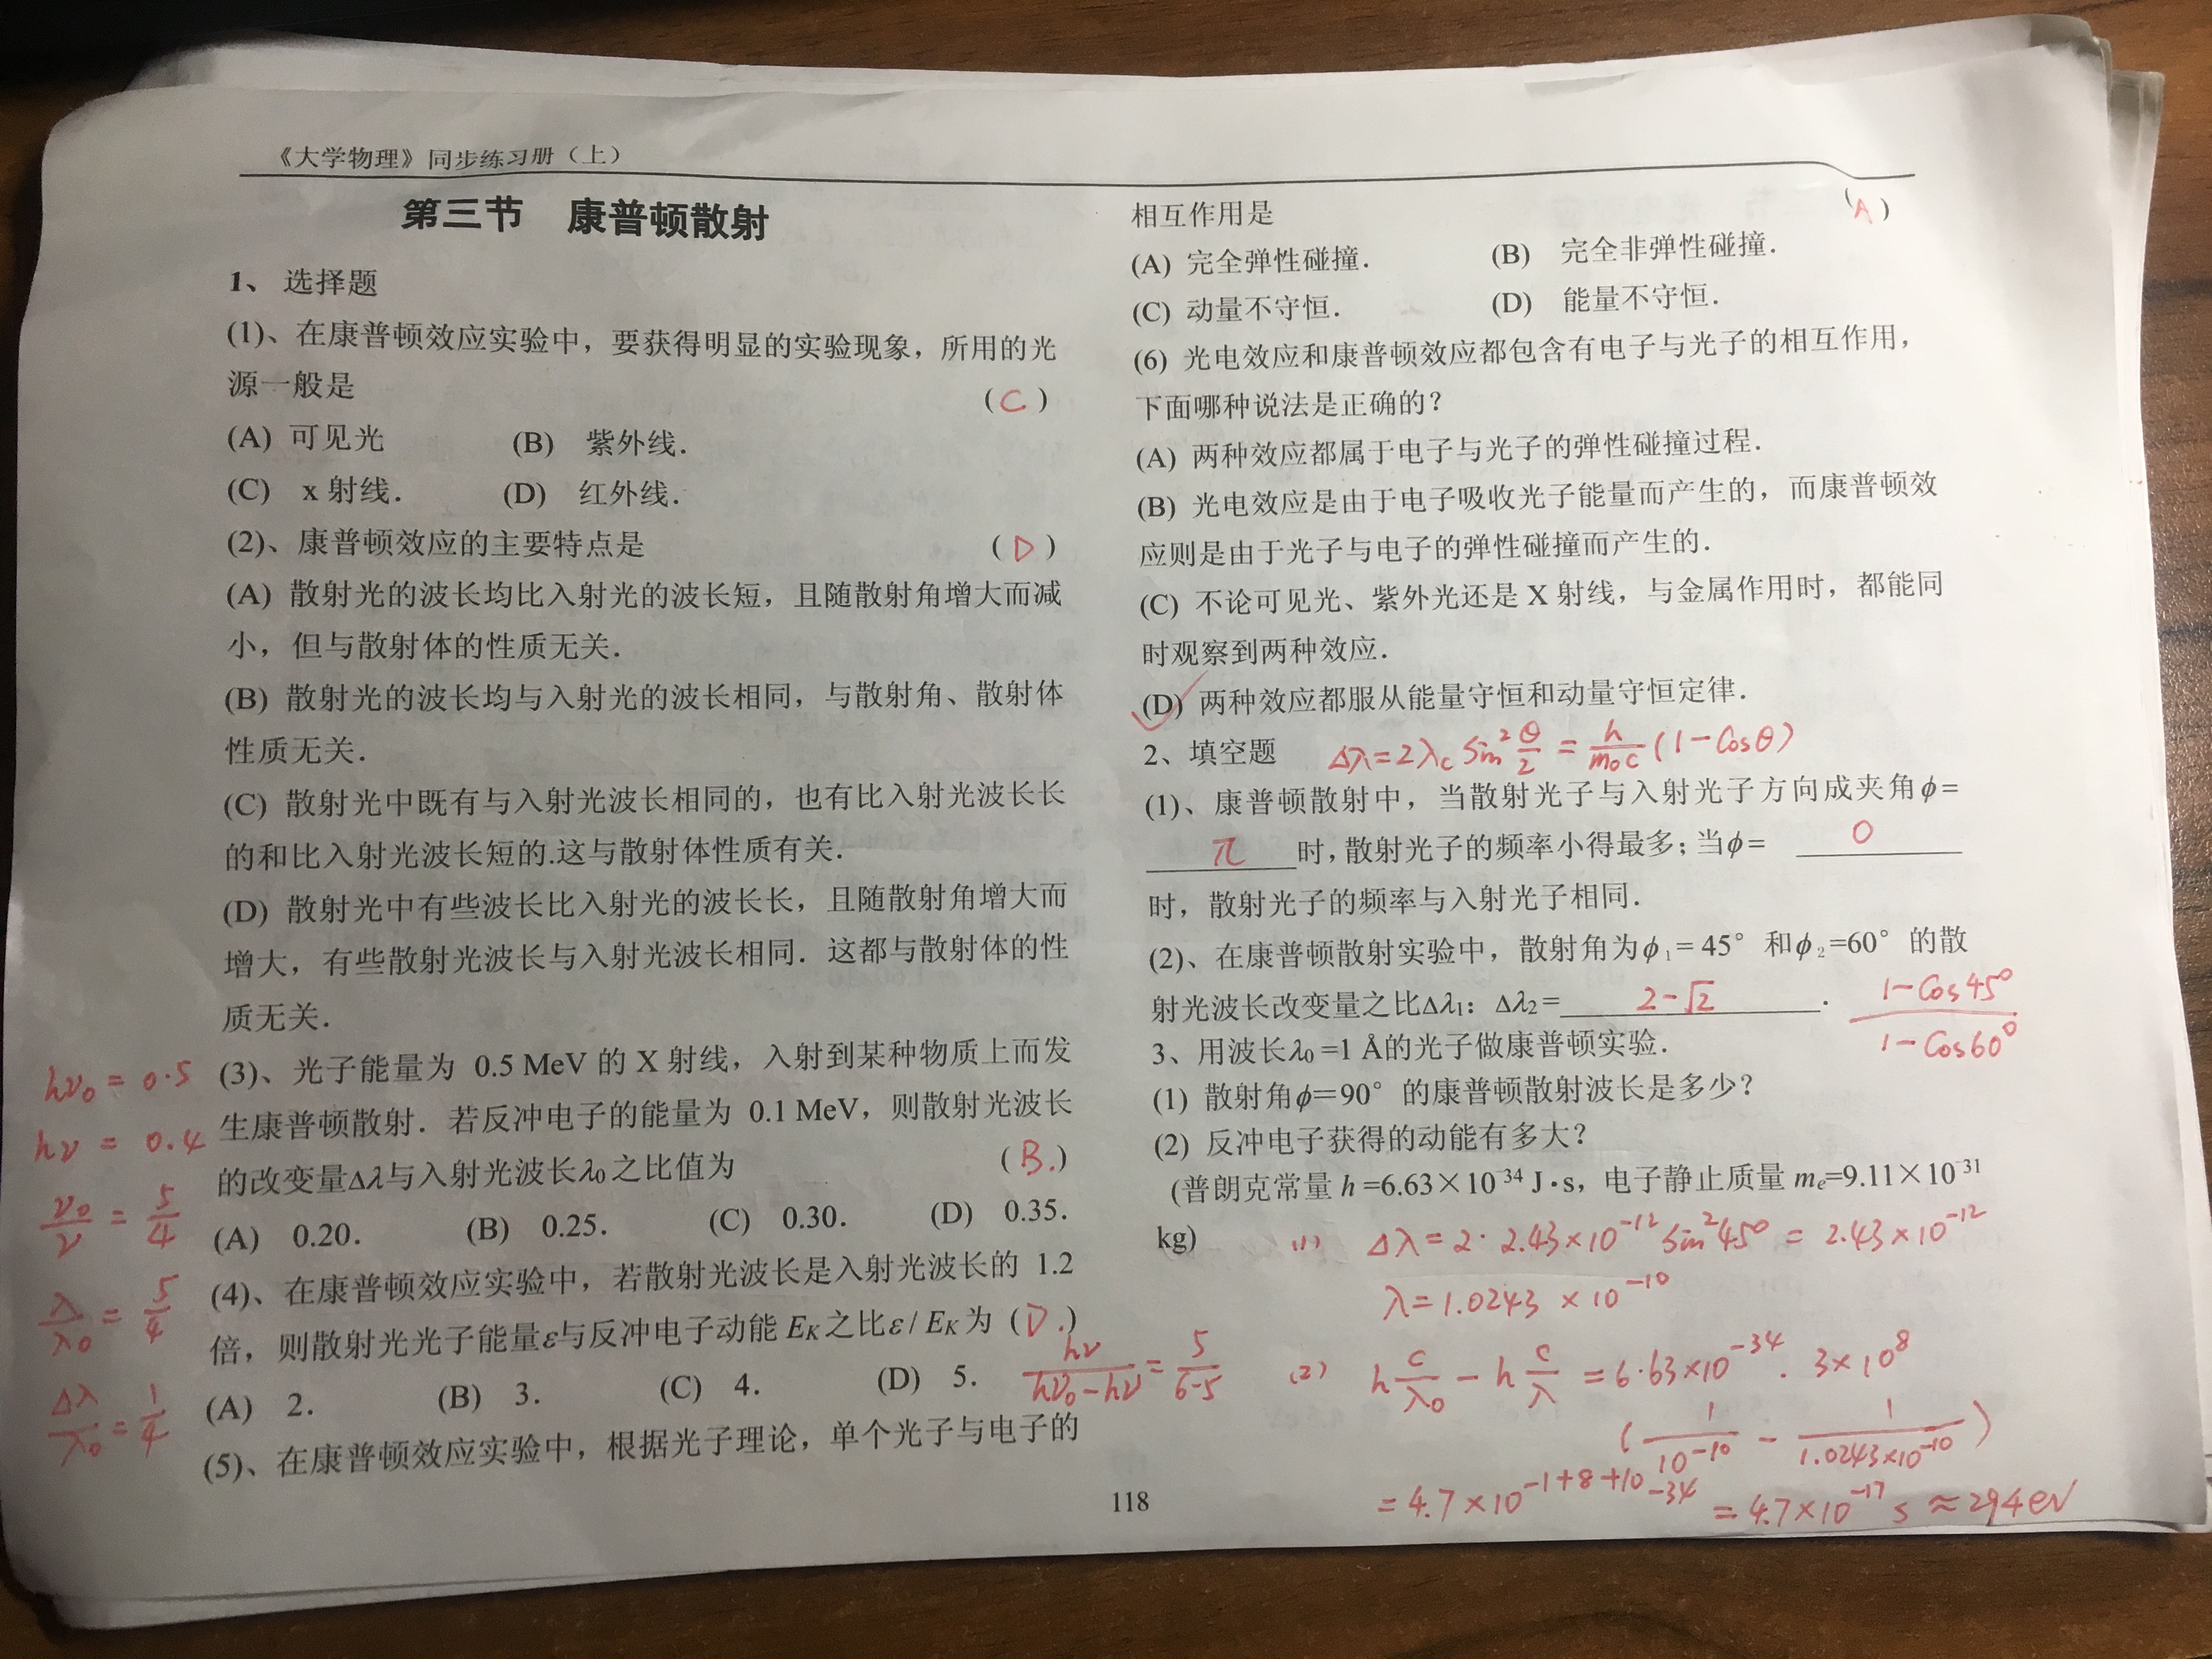 《大学物理》同步练习册（上）
第三节 康普顿散射
1、选择题
(1)、在康普顿效应实验中，要获得明显的实验现象，所用的光
源一般是 ( C )
(A) 可见光 (B) 紫外线．
(C) x 射线． (D) 红外线．
(2)、康普顿效应的主要特点是 ( D )
(A) 散射光的波长均比入射光的波长短，且随散射角增大而减
小，但与散射体的性质无关．
(B) 散射光的波长均与入射光的波长相同，与散射角、散射体
性质无关．
(C) 散射光中既有与入射光波长相同的，也有比入射光波长长
的和比入射光波长短的.这与散射体性质有关．
(D) 散射光中有些波长比入射光的波长长，且随散射角增大而
增大，有些散射光波长与入射光波长相同．这都与散射体的性
质无关．
(3)、光子能量为 0.5 MeV 的 X 射线，入射到某种物质上而发
生康普顿散射．若反冲电子的能量为 0.1 MeV，则散射光波长
的改变量Δλ与入射光波长λ0 之比值为 ( B. )
(A) 0.20． (B) 0.25． (C) 0.30． (D) 0.35．
hν₀ = 0.5
hν = 0.4
ν₀/ν = 5/4
λ/λ₀ = 5/4
Δλ/λ₀ = 1/4
(4)、在康普顿效应实验中，若散射光波长是入射光波长的 1.2
倍，则散射光光子能量ε与反冲电子动能 EK 之比ε / EK 为 ( D. )
(A) 2． (B) 3． (C) 4． (D) 5． hν/(hν₀-hν) = 5/(6-5)
(5)、在康普顿效应实验中，根据光子理论，单个光子与电子的
相互作用是 ( A )
(A) 完全弹性碰撞． (B) 完全非弹性碰撞．
(C) 动量不守恒． (D) 能量不守恒．
(6) 光电效应和康普顿效应都包含有电子与光子的相互作用，
下面哪种说法是正确的？
(A) 两种效应都属于电子与光子的弹性碰撞过程．
(B) 光电效应是由于电子吸收光子能量而产生的，而康普顿效
应则是由于光子与电子的弹性碰撞而产生的．
(C) 不论可见光、紫外光还是 X 射线，与金属作用时，都能同
时观察到两种效应．
(D) 两种效应都服从能量守恒和动量守恒定律．
2、填空题 Δλ=2λc Sin² θ/2 = h/m₀c (1-Cosθ)
(1)、康普顿散射中，当散射光子与入射光子方向成夹角ϕ=
π 时，散射光子的频率小得最多；当ϕ= 0
时，散射光子的频率与入射光子相同．
(2)、在康普顿散射实验中，散射角为ϕ1= 45° 和ϕ2=60° 的散
射光波长改变量之比Δλ1：Δλ2= 2-√2 ． (1-Cos45°)/(1-Cos60°)
3、用波长λ0 =1 Å的光子做康普顿实验．
(1) 散射角ϕ=90° 的康普顿散射波长是多少？
(2) 反冲电子获得的动能有多大？
(普朗克常量 h =6.63×10⁻³⁴ J·s，电子静止质量 me=9.11×10⁻³¹
kg) (1) Δλ = 2·2.43×10⁻¹² Sin²45° = 2.43×10⁻¹²
λ = 1.0243 ×10⁻¹⁰
(2) h c/λ₀ - h c/λ = 6.63×10⁻³⁴ . 3×10⁸
(1/10⁻¹⁰ - 1/1.0243×10⁻¹⁰)
= 4.7×10⁻¹⁺⁸⁺¹⁰⁻³⁴ = 4.7×10⁻¹⁷ s ≈ 294eV
118